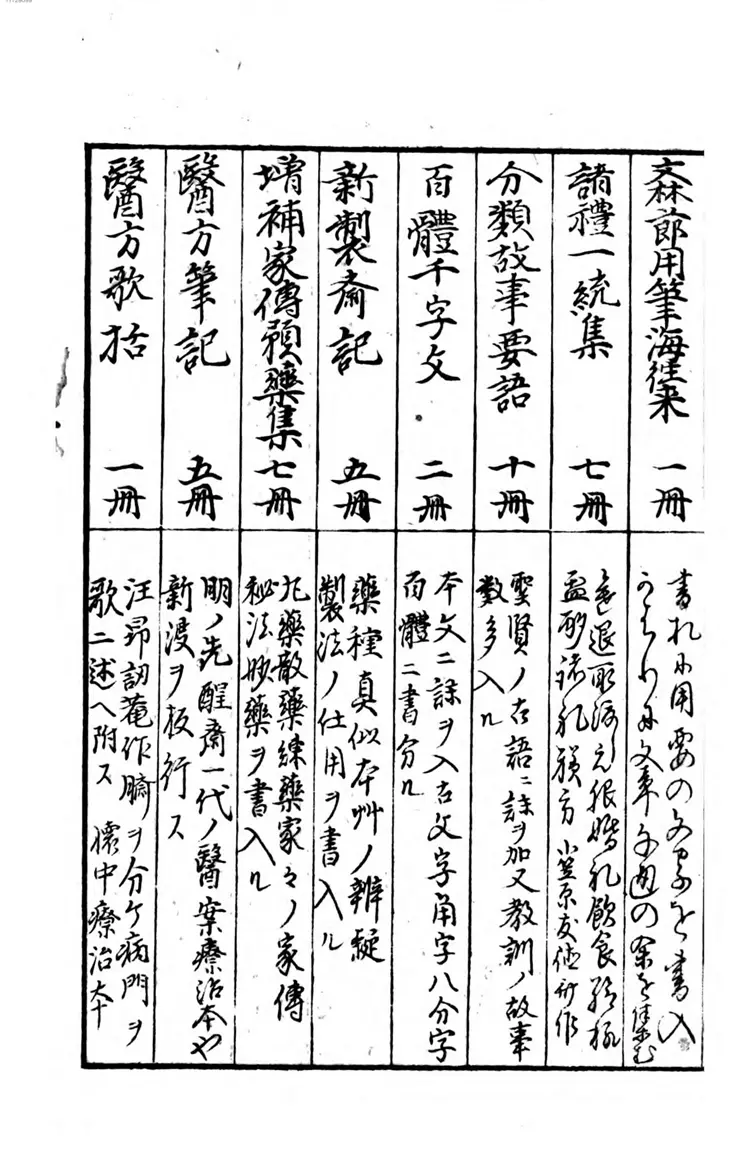 森節用筆海往来 一冊
書札ニ用要の文字を書入
文章を集む
諸禮一統集 七冊
飲食
諸礼躾方 小笠原友徳新作
分類故事要語 十冊
聖賢ノ古語ニ註ヲ加又教訓ノ故事
数多入ル
百體千字文 二冊
本文ニ註ヲ入古文字角字八分字
百體ニ書分ル
新製斎記 五冊
藥種真似本艸ノ辨綻
製法ノ仕用ヲ書入ル
増補家傳預藥集 七冊
丸藥散藥練藥家々ノ家傳
秘法妙藥ヲ書入ル
醫方筆記 五冊
明ノ先醒齋一代ノ醫案療治本や
新渡ヲ板行ス
醫方歌括 一冊
汪昂訒菴作臍ヲ分ケ病門ヲ
歌ニ述ヘ附ス 懐中療治本